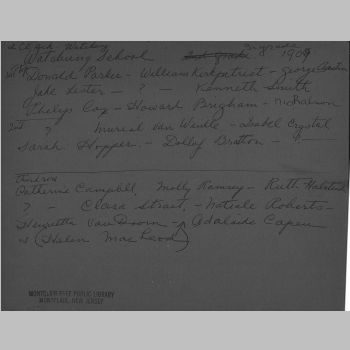 Watchung School 1909
Donald Parker - William Kirkpatrick - George
Jake Lester - ? - Kenneth Smith
Phelps Cox - Howard Brigham -
2nd ? Muriel Van Winkle - Isabel Crystal
Sarah Hopper - Dolly Bratton - ?
Catherine Campbell, Molly Ramsey - Ruth Halsted
? - Clara Street, - Natalie Roberts -
Henrietta Van Doorn - Adelaide Capen
(Helen MacLeod)
MONTCLAIR FREE PUBLIC LIBRARY
MONTCLAIR, NEW JERSEY